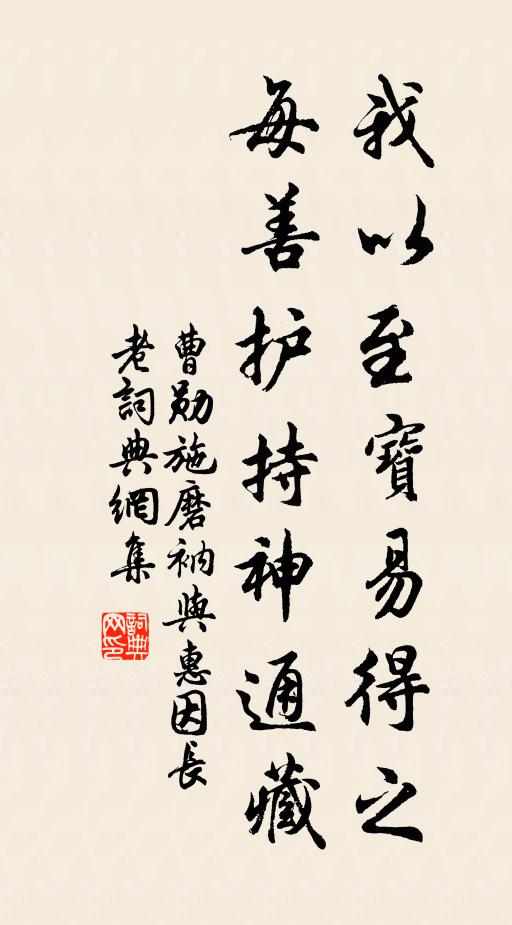 我以至寶易得之
每善护持神通藏
曹勛施磨衲與惠因長
老詞典網集
詞典网印